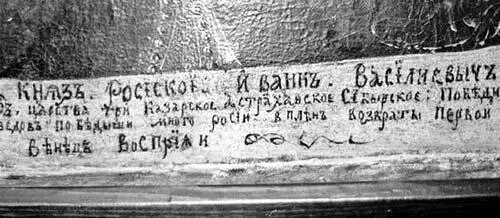 КНЯЗЬ. РОСІСКОЇ Й ВАНИЪ. ВАСІЛИЕВЫЧЪ
ЦАРСТВА ТРИ КАЗАРСКОЕ АСТРАХАНСКОЕ СІБЫРСКОЕ: ПОВЕДИ
ПОБЕДЫШИ МНОГО РОСІИ В ПЛѢН ВОЗВРАТЬ ПЕРВОИ
ВѢНЕЦЪ ВОСПРІЯ И